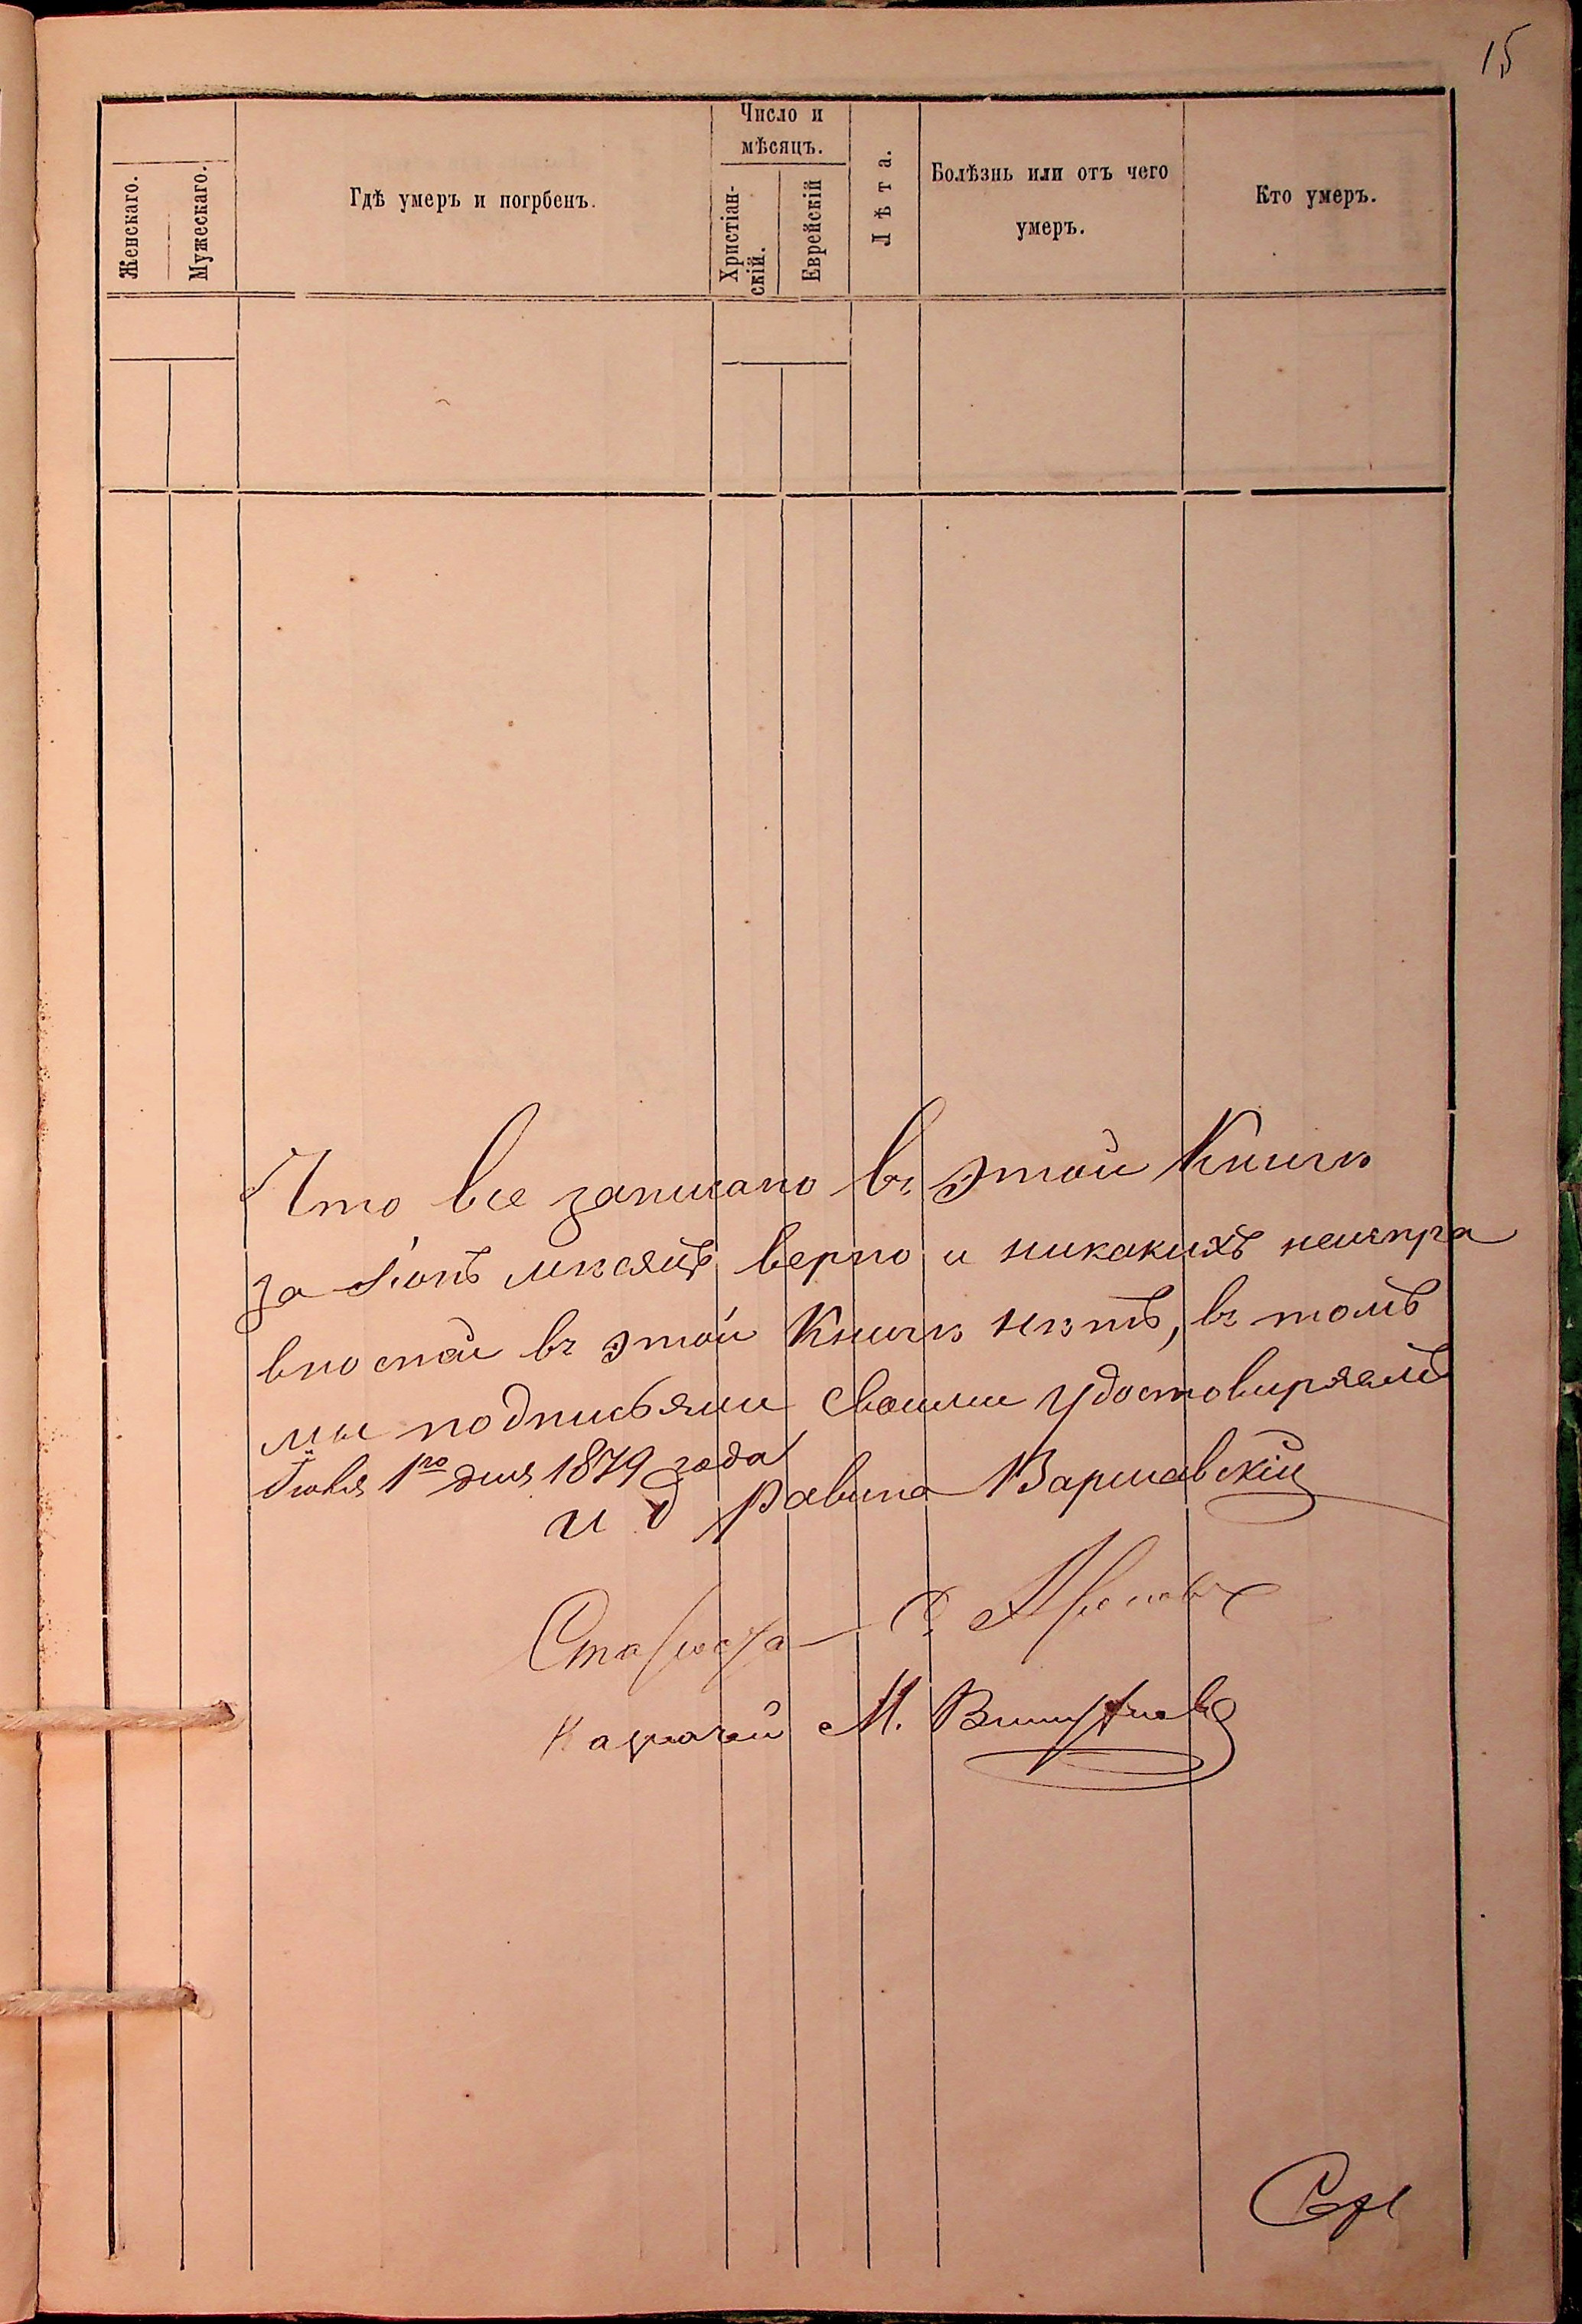 15
Женскаго.
Мужескаго.
Гдѣ умеръ и погрбенъ.
Число и
мѣсяцъ.
Христіан-
скій.
Еврейскій
Лѣта.
Болѣзнь или отъ чего
умеръ.
Кто умеръ.
Что все записано въ этой Книгѣ
за Іюнь мѣсяцъ верно и никакихъ неиспра
вностей въ этой Книгѣ нѣтъ, въ томъ
мы подписями своими удостовиряемъ
Іюля 1го дня 1879 года
и д равина Варшавскій
Староста
Казначей М.